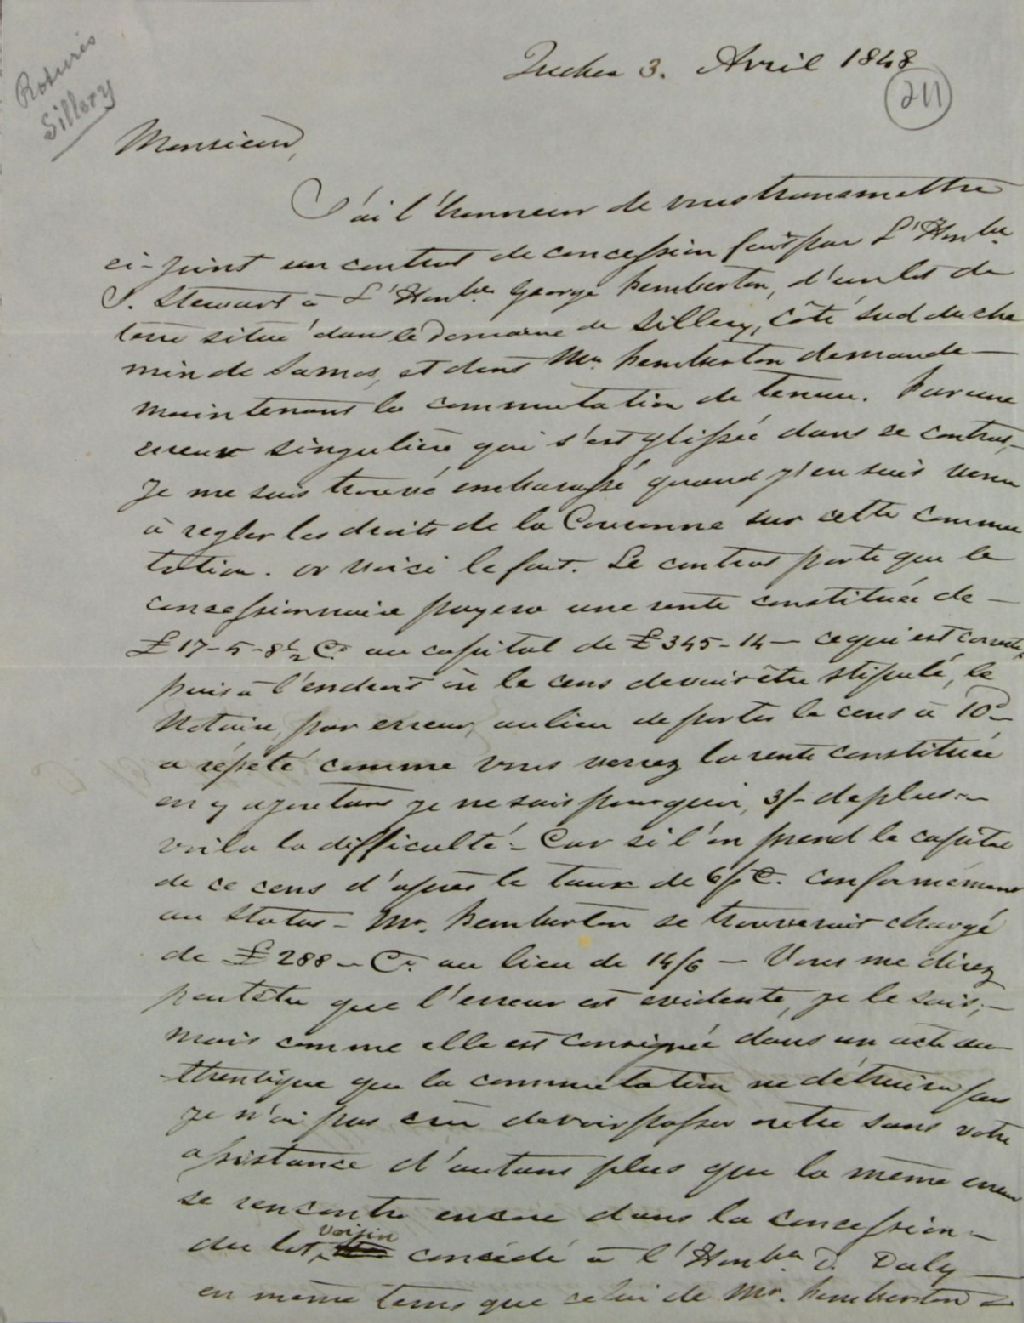 Roturés
Sillery
Quebec 3. Avril 1848
211
Monsieur,
J'ai l'honneur de vous transmettre
ci-joint un contrat de concession fait par L'Honble
J. Stewart à L'Honble George Pemberton, d'un lot de
terre situé dans le Domaine de Sillery, côté sud du che
min de Samos, et dont Mr. Pemberton demande—
maintenant la commutation de tenure. Par une
erreur singulière qui s'est glissée dans ce contrat,—
je me suis trouvé embarassé quand j'en suis venu
à regler les droits de la Couronne sur cette commu
tation. or voici le fait. Le contrat porte que le
concessionnaire payera une rente constituée de—
£17-5-8½ Cy. au capital de £345-14— ce qui est correct,
puis à l'endroit où le cens devait être stipulé, le
Notaire, par erreur, au lieu de porter le cens à 10d—
a répété comme vous verrez la rente constituée
en y ajoutant je ne sais pourquoi, 3/- de plus—
voila la difficulté— Car si l'on prend le capital
de ce cens d'après le taux de 6 p C. conformément
au Statut— Mr. Pemberton se trouverait chargé
de £288— Cy. au lieu de 14/6 — Vous me direz
peutêtre que l'erreur est evidente, je le sais;—
mais comme elle est consignée dans un acte au
thentique que la commutation ne détruira pas
je n'ai pas crû devoir passer outre sans votre
assistance d'autant plus que la même erreur
se rencontre encore dans la concession—
du lot voisin concédé à l'Honble D. Daly—
en même tems que celui de Mr. Pemberton &